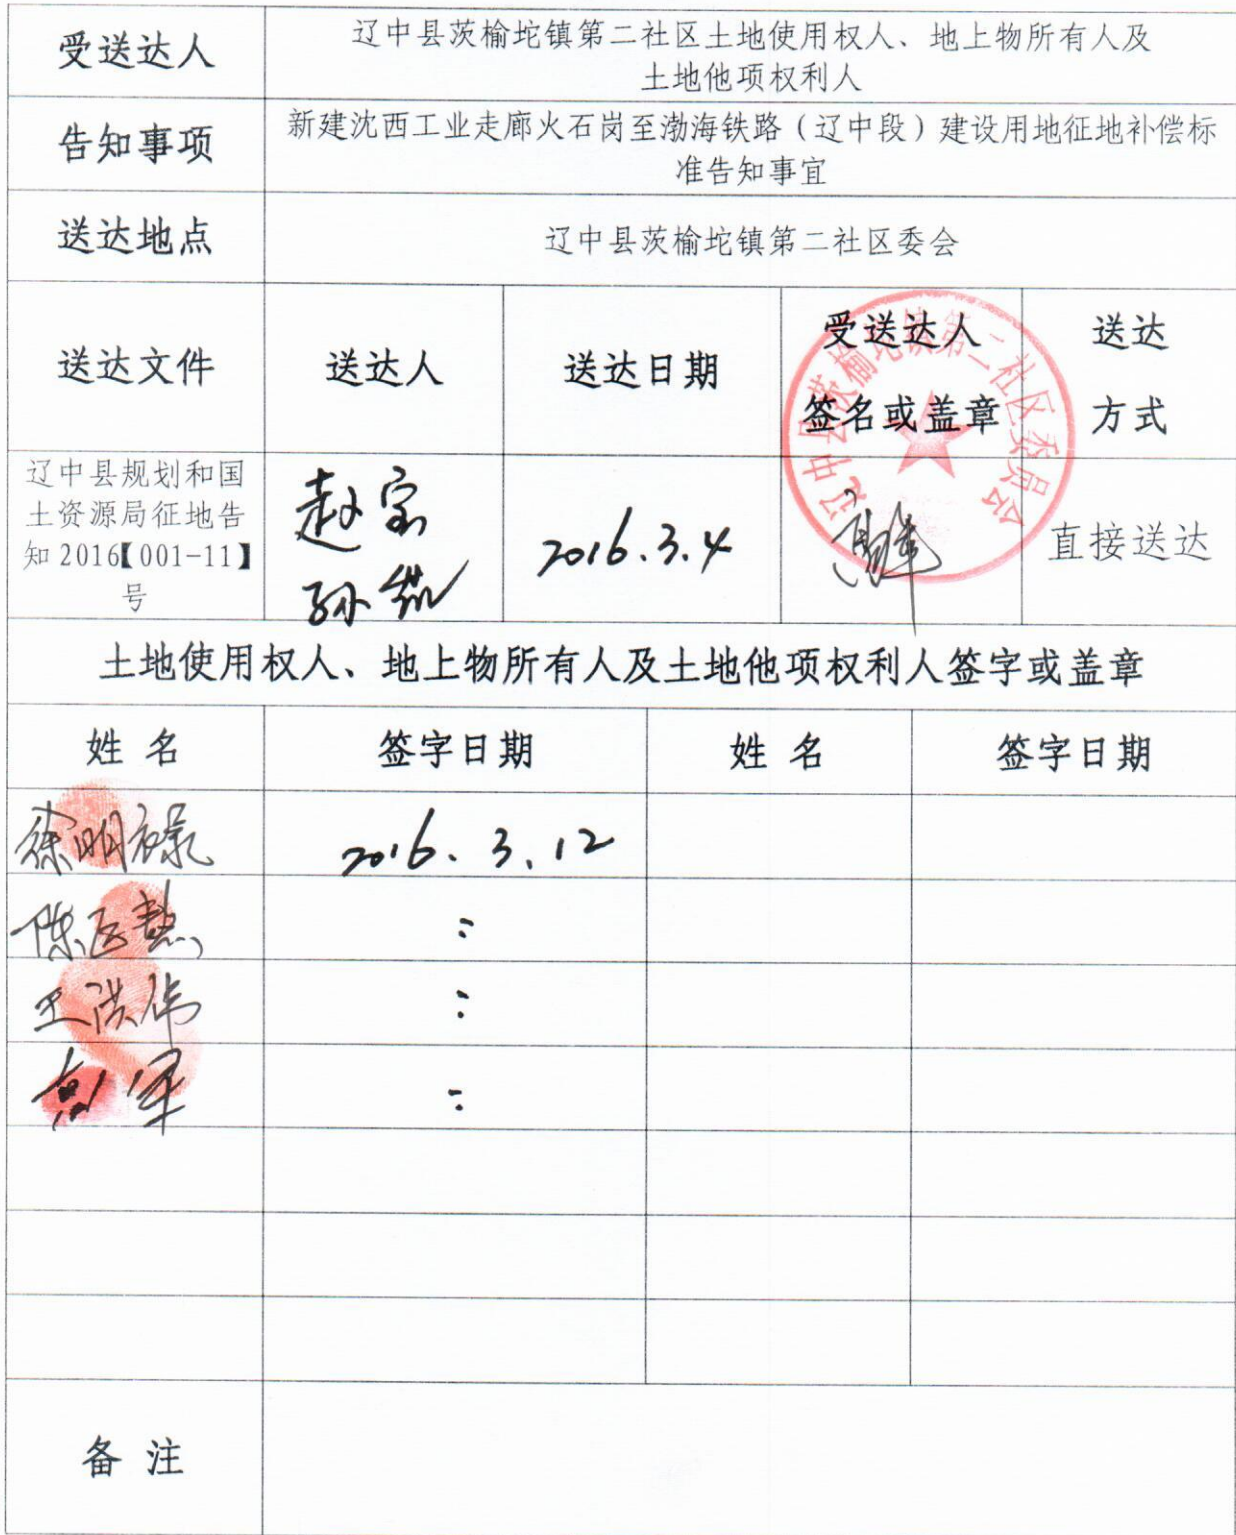 受送达人
辽中县茨榆坨镇第二社区土地使用权人、地上物所有人及
土地他项权利人
告知事项
新建沈西工业走廊火石岗至渤海铁路（辽中段）建设用地征地补偿标
准告知事宜
送达地点
辽中县茨榆坨镇第二社区委会
送达文件
送达人
送达日期
受送达人
签名或盖章
送达
方式
辽中县茨榆坨镇第二社区委员会
辽中县规划和国
土资源局征地告
知2016【001-11】
号
赵宝
孙
2016.3.4
直接送达
土地使用权人、地上物所有人及土地他项权利人签字或盖章
姓 名
签字日期
姓 名
签字日期
徐明禄
2016.3.12
陈
王洪伟
军
备 注